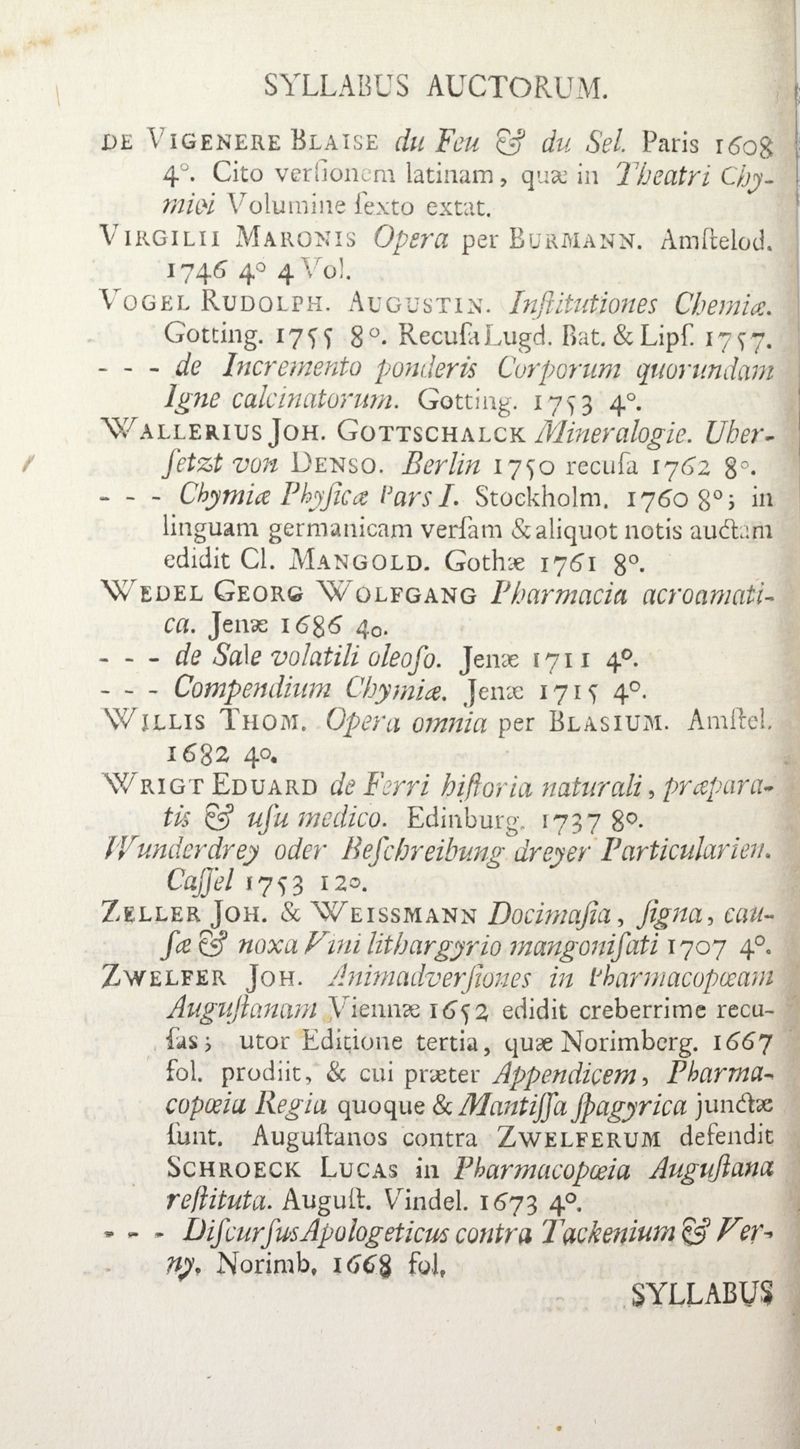 SYLLABUS AUCTORUM.
DE VIGENERE BLAISE du Feu & du Sel. Paris 1608
4°. Cito verſionem latinam, quæ in Theatri Chy-
mici Volumine ſexto extat.
VIRGILII MARONIS Opera per BURMANN. Amſtelod.
1746 4° 4 Vol.
VOGEL RUDOLPH. AUGUSTIN. Inſtitutiones Chemiæ.
Gotting. 1755 8°. Recuſa Lugd. Bat. & Lipſ. 1757.
- - - de Incremento ponderis Corporum quorundam
Igne calcinatorum. Gotting. 1753 4°.
WALLERIUS JOH. GOTTSCHALCK Mineralogie. Uber-
ſetzt von DENSO. Berlin 1750 recuſa 1762 8°.
- - - Chymiæ Phyſicæ Pars I. Stockholm. 1760 8°; in
linguam germanicam verſam & aliquot notis auctam
edidit Cl. MANGOLD. Gothæ 1761 8°.
WEDEL GEORG WOLFGANG Pharmacia acroamati-
ca. Jenæ 1686 4o.
- - - de Sale volatili oleoſo. Jenæ 1711 4°.
- - - Compendium Chymiæ. Jenæ 1715 4°.
WILLIS THOM. Opera omnia per BLASIUM. Amſtel.
1682 4°.
WRIGT EDUARD de Ferri hiſtoria naturali, præpara-
tis & uſu medico. Edinburg. 1737 8°.
Wunderdrey oder Beſchreibung dreyer Particularien.
Caſſel 1753 12°.
ZELLER JOH. & WEISSMANN Docimaſia, ſigna, cau-
ſæ & noxa Vini lithargyrio mangoniſati 1707 4°.
ZWELFER JOH. Animadverſiones in Pharmacopœam
Auguſtanam Viennæ 1652 edidit creberrime recu-
ſas; utor Editione tertia, quæ Norimberg. 1667
fol. prodiit, & cui præter Appendicem, Pharma-
copœia Regia quoque & Mantiſſa ſpagyrica junctæ
ſunt. Auguſtanos contra ZWELFERUM defendit
SCHROECK LUCAS in Pharmacopœia Auguſtana
reſtituta. Auguſt. Vindel. 1673 4°.
- - - Diſcurſus Apologeticus contra Tackenium & Ver-
ny, Norimb, 1668 fol,
SYLLABUS